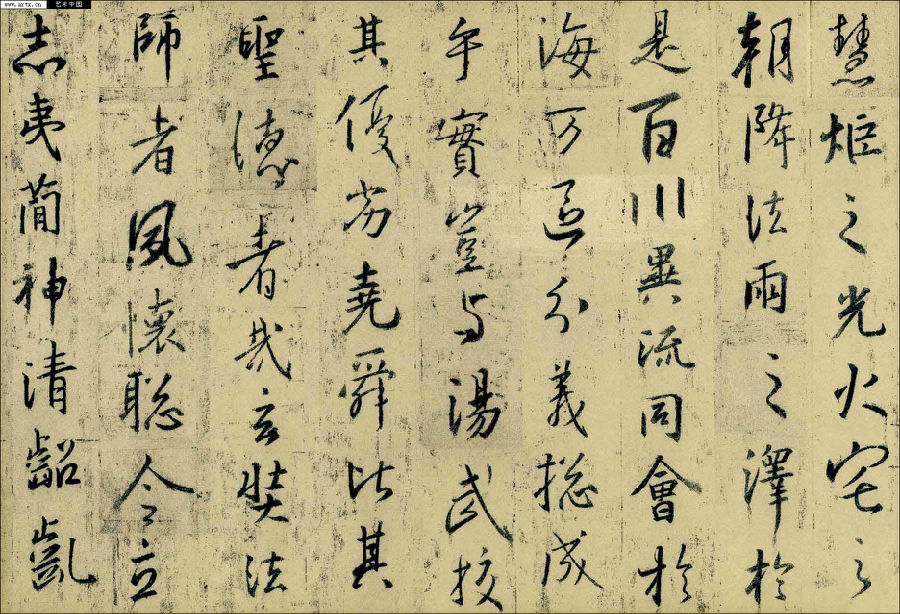 www.artx.cn 艺术中国
慧炬之光火宅之
朝降法雨之澤於
是百川異流同會於
海万區分義揔成
乎實豈与湯武挍
其優劣堯舜比其
聖德者哉玄奘法
師者夙懷聡令立
志夷簡神清齠齔